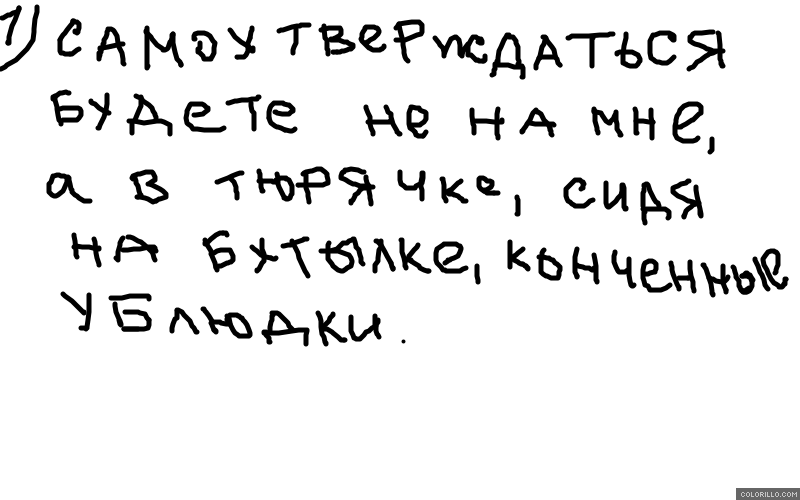 1) САМОУТВЕРЖДАТЬСЯ
БУДЕТЕ НЕ НА МНЕ,
а В ТЮРЯЧКе, СИДЯ
НА БУТЫЛКЕ, КОНЧЕННЫЕ
УБЛЮДКИ.
COLORILLO.COM